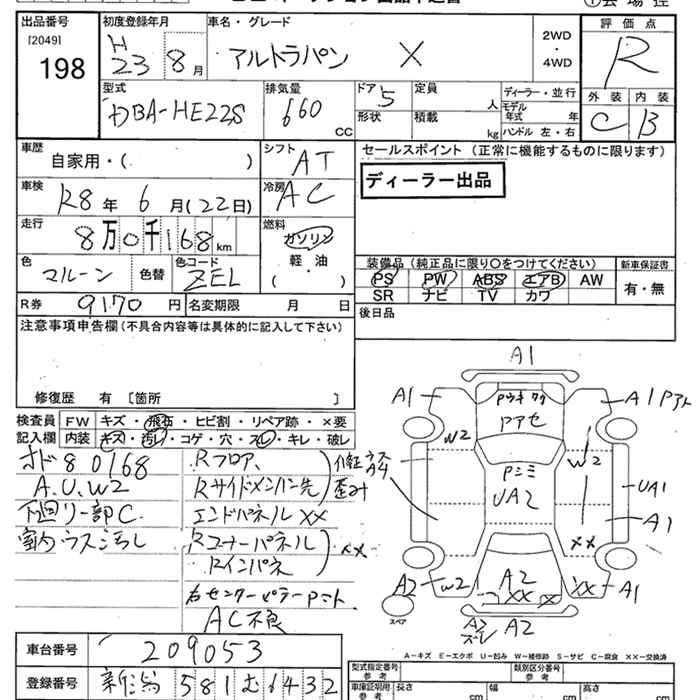 出品番号 初度登録年月 車名・グレード 評価点
[2049] 198 H 23 8月 アルトラパン X 2WD・4WD R
外装 内装
C B
型式 排気量 ドア 定員 人 ディーラー・並行
DBA-HE22S 660 CC 5 モデル年式 年
形状 積載 kg ハンドル 左・右
車歴 シフト セールスポイント (正常に機能するものに限ります)
自家用・( ) AT ディーラー出品
車検 冷房
R8年 6月(22日) AC
走行 燃料
8万0千168km ガソリン
軽・油
( )
色 色替 色コード
マルーン ZEL
装備品(純正品に限り○をつけてください) 新車保証書
PS PW ABS エアB AW 有・無
SR ナビ TV カワ
R券 9170円 名変期限 月 日 後日品
注意事項申告欄(不具合内容等は具体的に記入して下さい)
修復歴 有 [箇所 ]
検査員 FW キズ・飛石・ヒビ割・リペア跡・×要
記入欄 内装 キズ・汚レ・コゲ・穴・スレ・キレ・破レ
オド80168 Rフロア、
A.U.W2 Rサイドメンバー先
下回リ一部C エンドパネル××
室内ウス汚レ Rコーナーパネル
Rインパネ ××
右センターピラーPニート
AC不良
A1
A1 A1
W2 W2
UA2 UA1
A1
××
A2 W2 A2 ×× ×× A1
スペア A2
A-キズ E-エクボ U-凹み W-補修跡 S-サビ C-腐食 ××-交換済
車台番号 209053
登録番号 新潟 581む6432
型式指定番号 参考 類別区分番号 参考
車庫証明用 参考 長さ cm 幅 cm 高さ cm